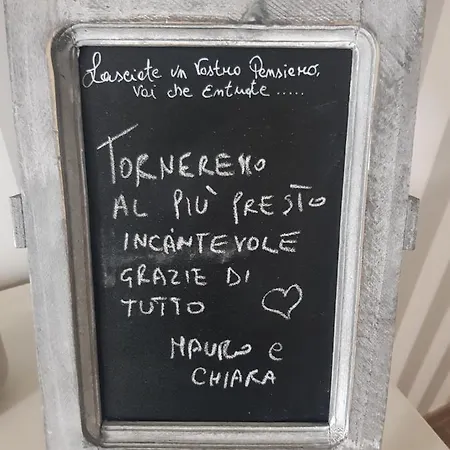 Lasciate un Vostro Pensiero,
Voi che Entrate .....
TORNEREMO
AL PIÙ PRESTO
INCANTEVOLE
GRAZIE DI
TUTTO
MAURO e
CHIARA